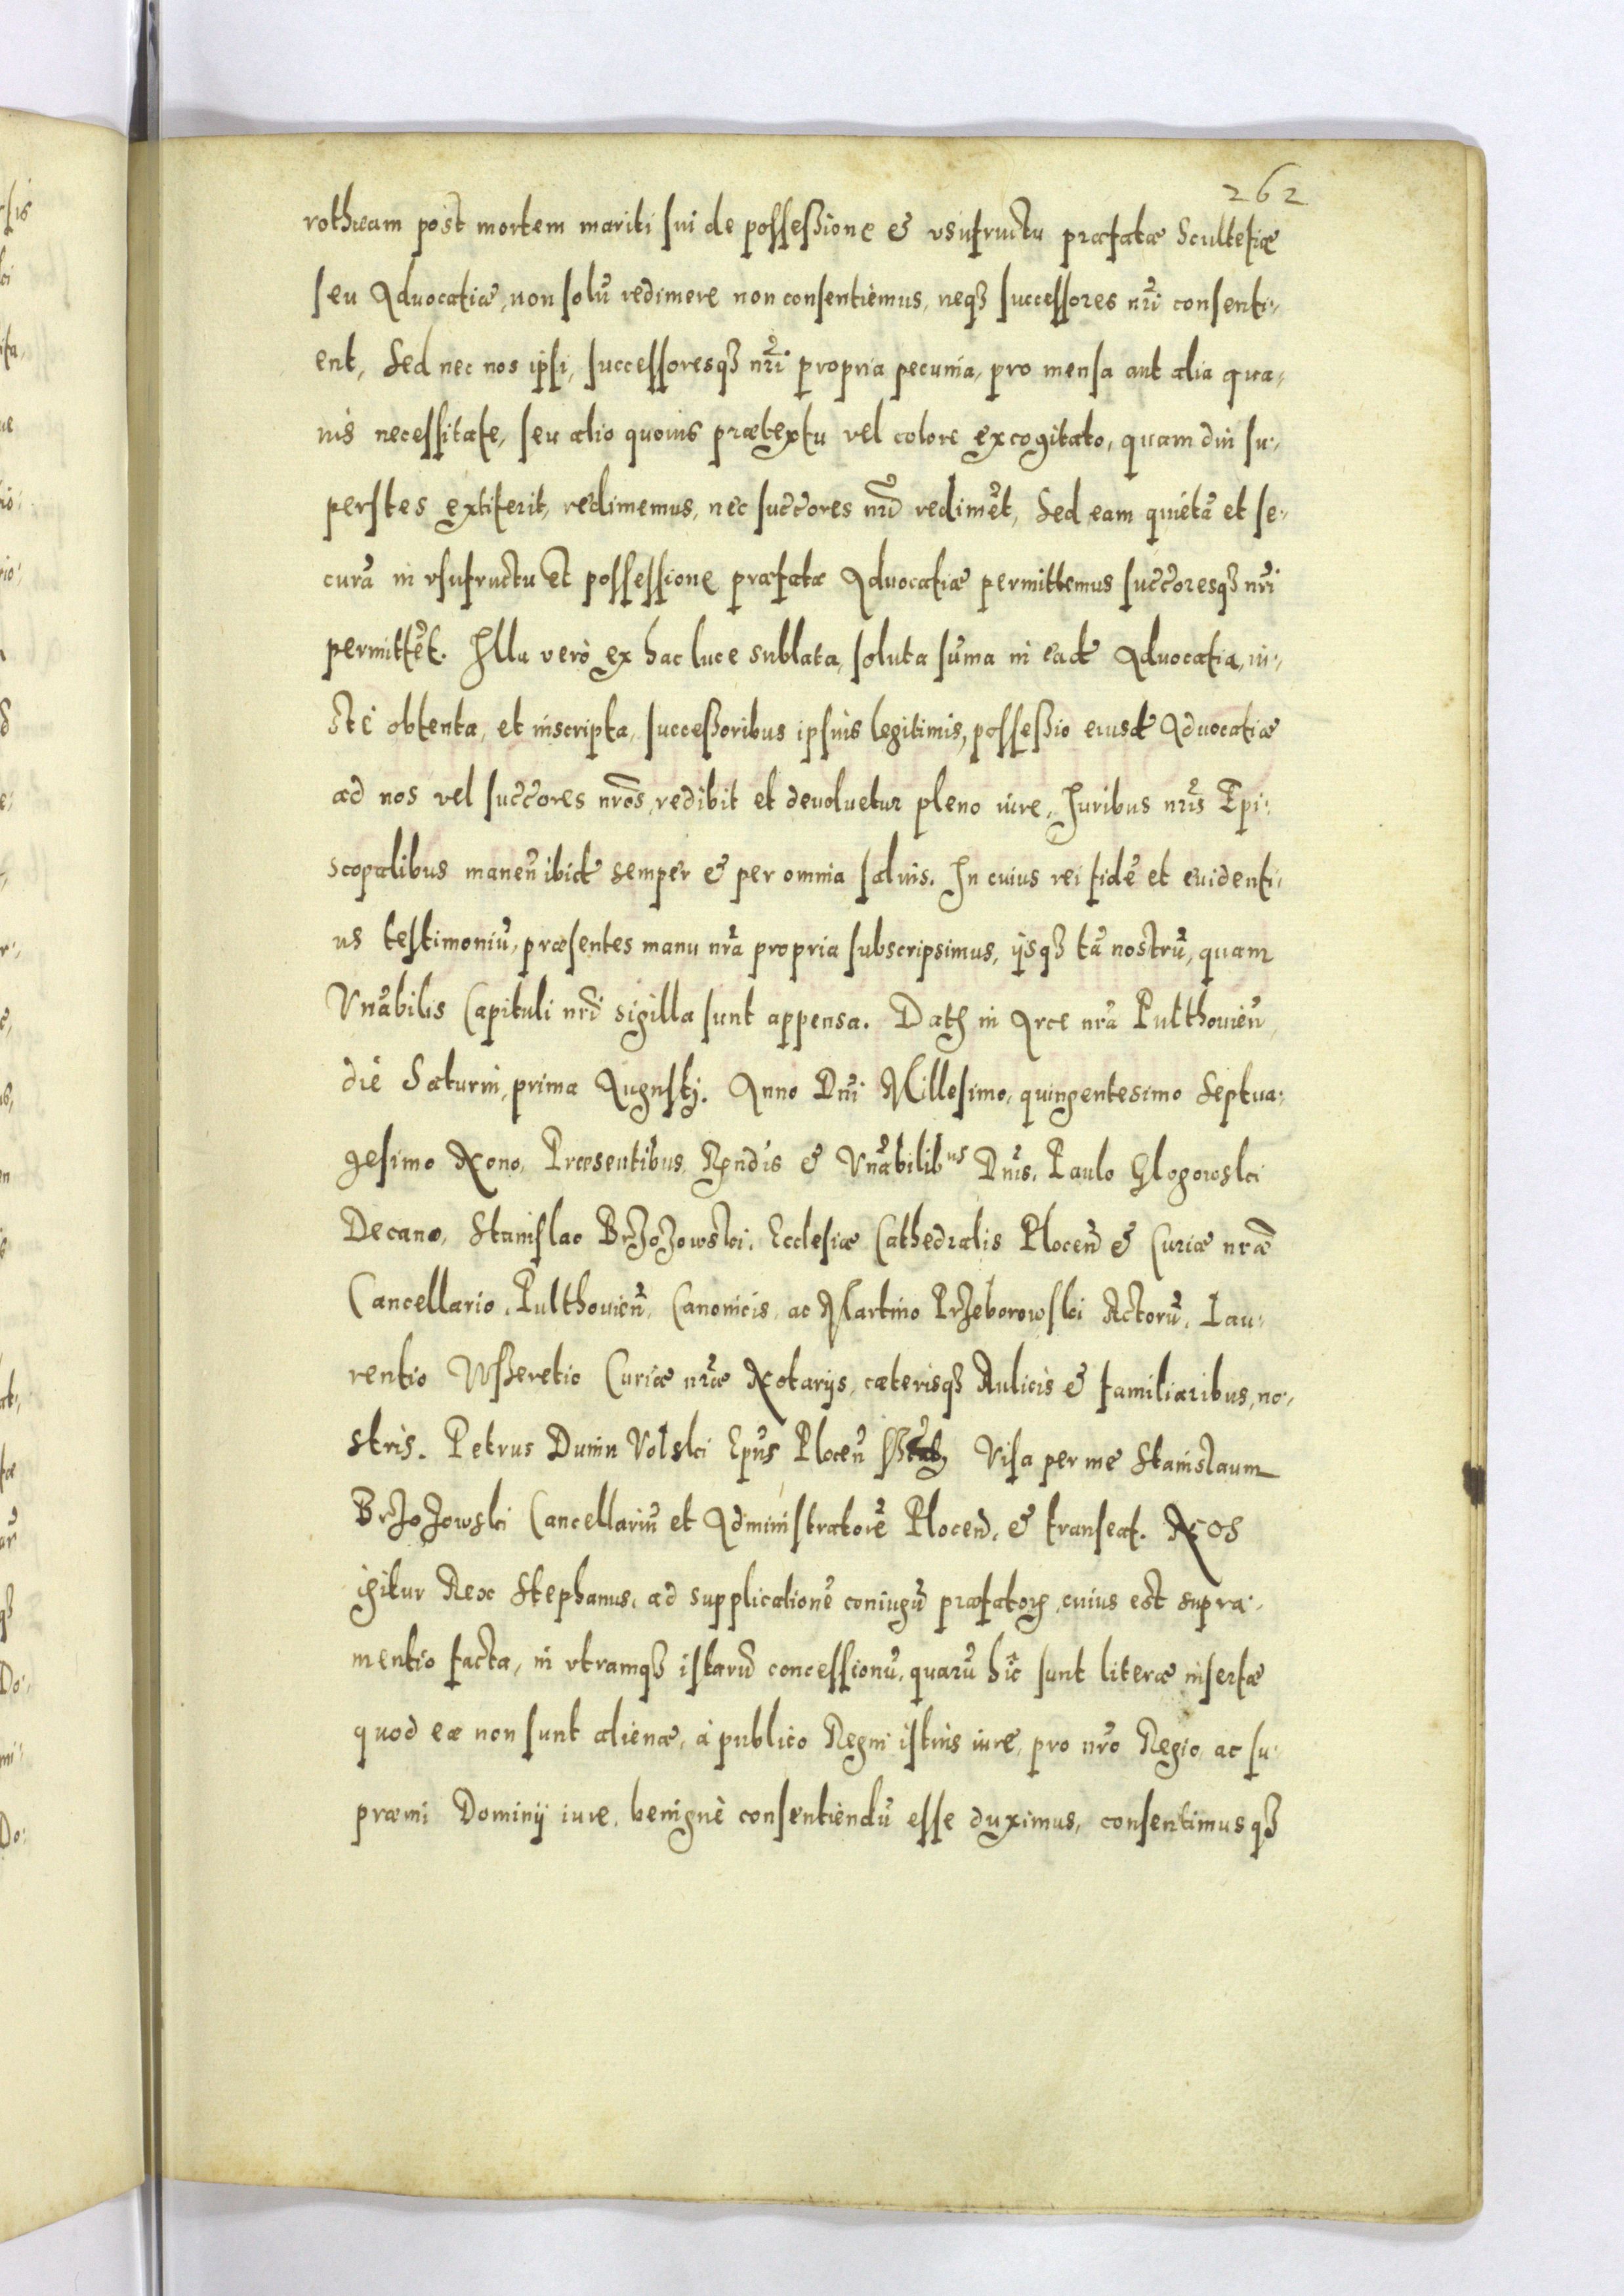 262
rotheam post mortem mariti sui de possessione & vsufructu præfatæ Scultetiæ
seu Aduocatiæ, non solũ redimere non consentiemus, neqȝ successores nr̃i consenti,,
ent, Sed nec nos ipsi, successoresqȝ nr̃i propria pecunia, pro mensa aut alia qua,,
uis necessitate, seu alio quouis prætextu vel colore excogitato, quam diu su,,
perstes extiterit, redimemus, nec succ̃ores nr̃i redimẽt, Sed eam quiétã et se,,
curã in vsufructu et possessione præfatæ Aduocatiæ permittemus succ̃oresqȝ nr̃i
permittẽt. Illa verò ex hac luce sublata, soluta sũma in ead̃ Aduocatia, iu,,
stè obtenta, et inscripta, successoribus ipsius legitimis, possessio eiusd̃ Aduocatiæ
ad nos vel succ̃ores nr̃os, redibit et deuoluetur pleno iure, Iuribus nr̃is Epi,,
scopalibus maneñ ibid̃ semper & per omnia saluis. In cuius rei fidẽ et euidenti,,
us testimoniũ, præsentes manu nr̃a propria subscripsimus, ijsqȝ tã nostrũ, quam
Vnãbilis Capituli nr̃i sigilla sunt appensa. Datꝫ in Arce nr̃a Pulthouieñ
die Saturni, prima Augusti. Anno Dñi Millesimo, quingentesimo Septua,,
gesimo Nono, Præsentibus, Rñdis & Vnãbilibus Dñis, Paulo Glogowski
Decano, Stanislao Brzozowski, Ecclesiæ Cathedralis Ploceñ & Curiæ nr̃æ
Cancellario, Pulthouieñ, Canonicis, ac Martino Przeborowski Actorũ, Lau,,
rentio Wsseretio Curiæ nr̃æ Notarijs, cæterisqȝ Aulicis & familiaribus, no,,
stris. Petrus Dunin Volski Epũs Ploceñ Visa per me Stanislaum
Brzozowski Cancellariũ et Administratorẽ Ploceñ, & transeat. NOS
igitur Rex Stephanus, ad supplicationẽ coniugũ præfatoꝝ, cuius est supra,,
mentio facta, in vtramqȝ istarũ concessionũ, quarũ hîc sunt literæ insertæ
quod eæ non sunt alienæ, à publico Regni istius iure, pro nr̃o Regio, ac su,,
præmi Dominij iure, benignè consentiendũ esse duximus, consentimusqȝ